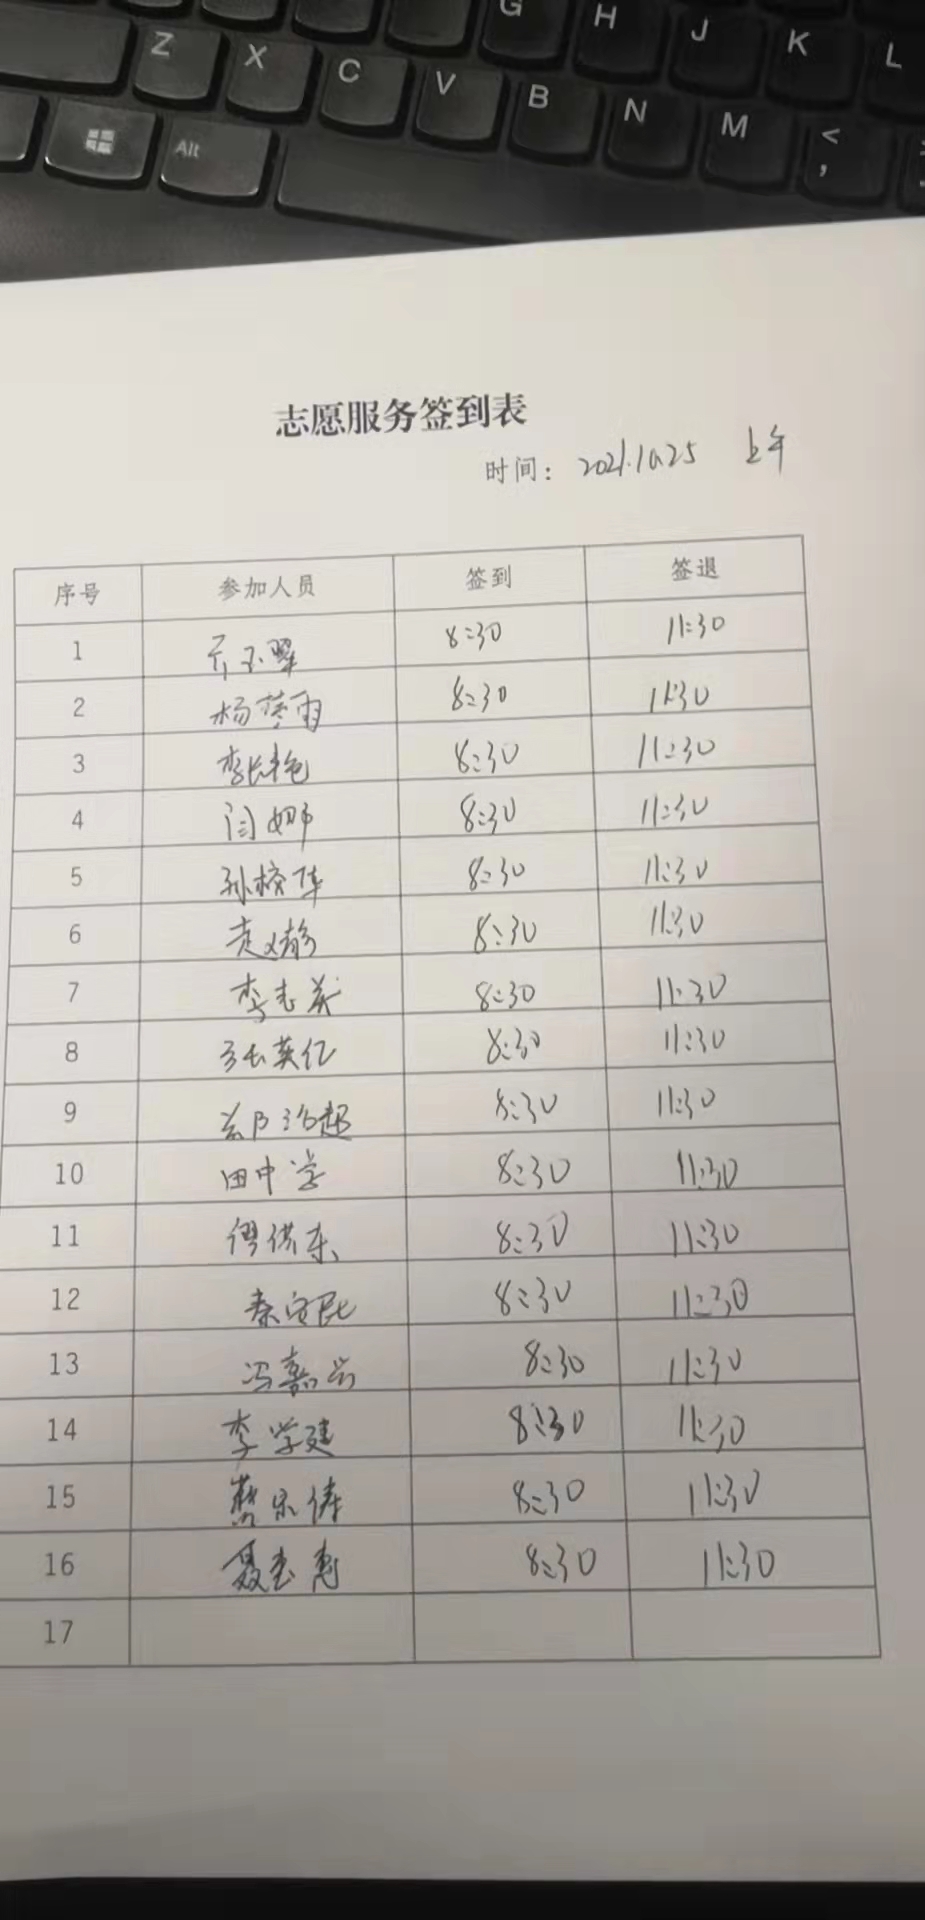 G H J K L
Z X C V B N M < ,
Alt
志愿服务签到表
时间: 2021.10.25 上午
序号 参加人员 签到 签退
1 8:30 11:30
2 8:30 11:30
3 李长艳 8:30 11:30
4 闫娜 8:30 11:30
5 8:30 11:30
6 赵静 8:30 11:30
7 李志英 8:30 11:30
8 张英亿 8:30 11:30
9 8:30 11:30
10 田中学 8:30 11:30
11 8:30 11:30
12 8:30 11:30
13 冯嘉 8:30 11:30
14 李学建 8:30 11:30
15 8:30 11:30
16 8:30 11:30
17